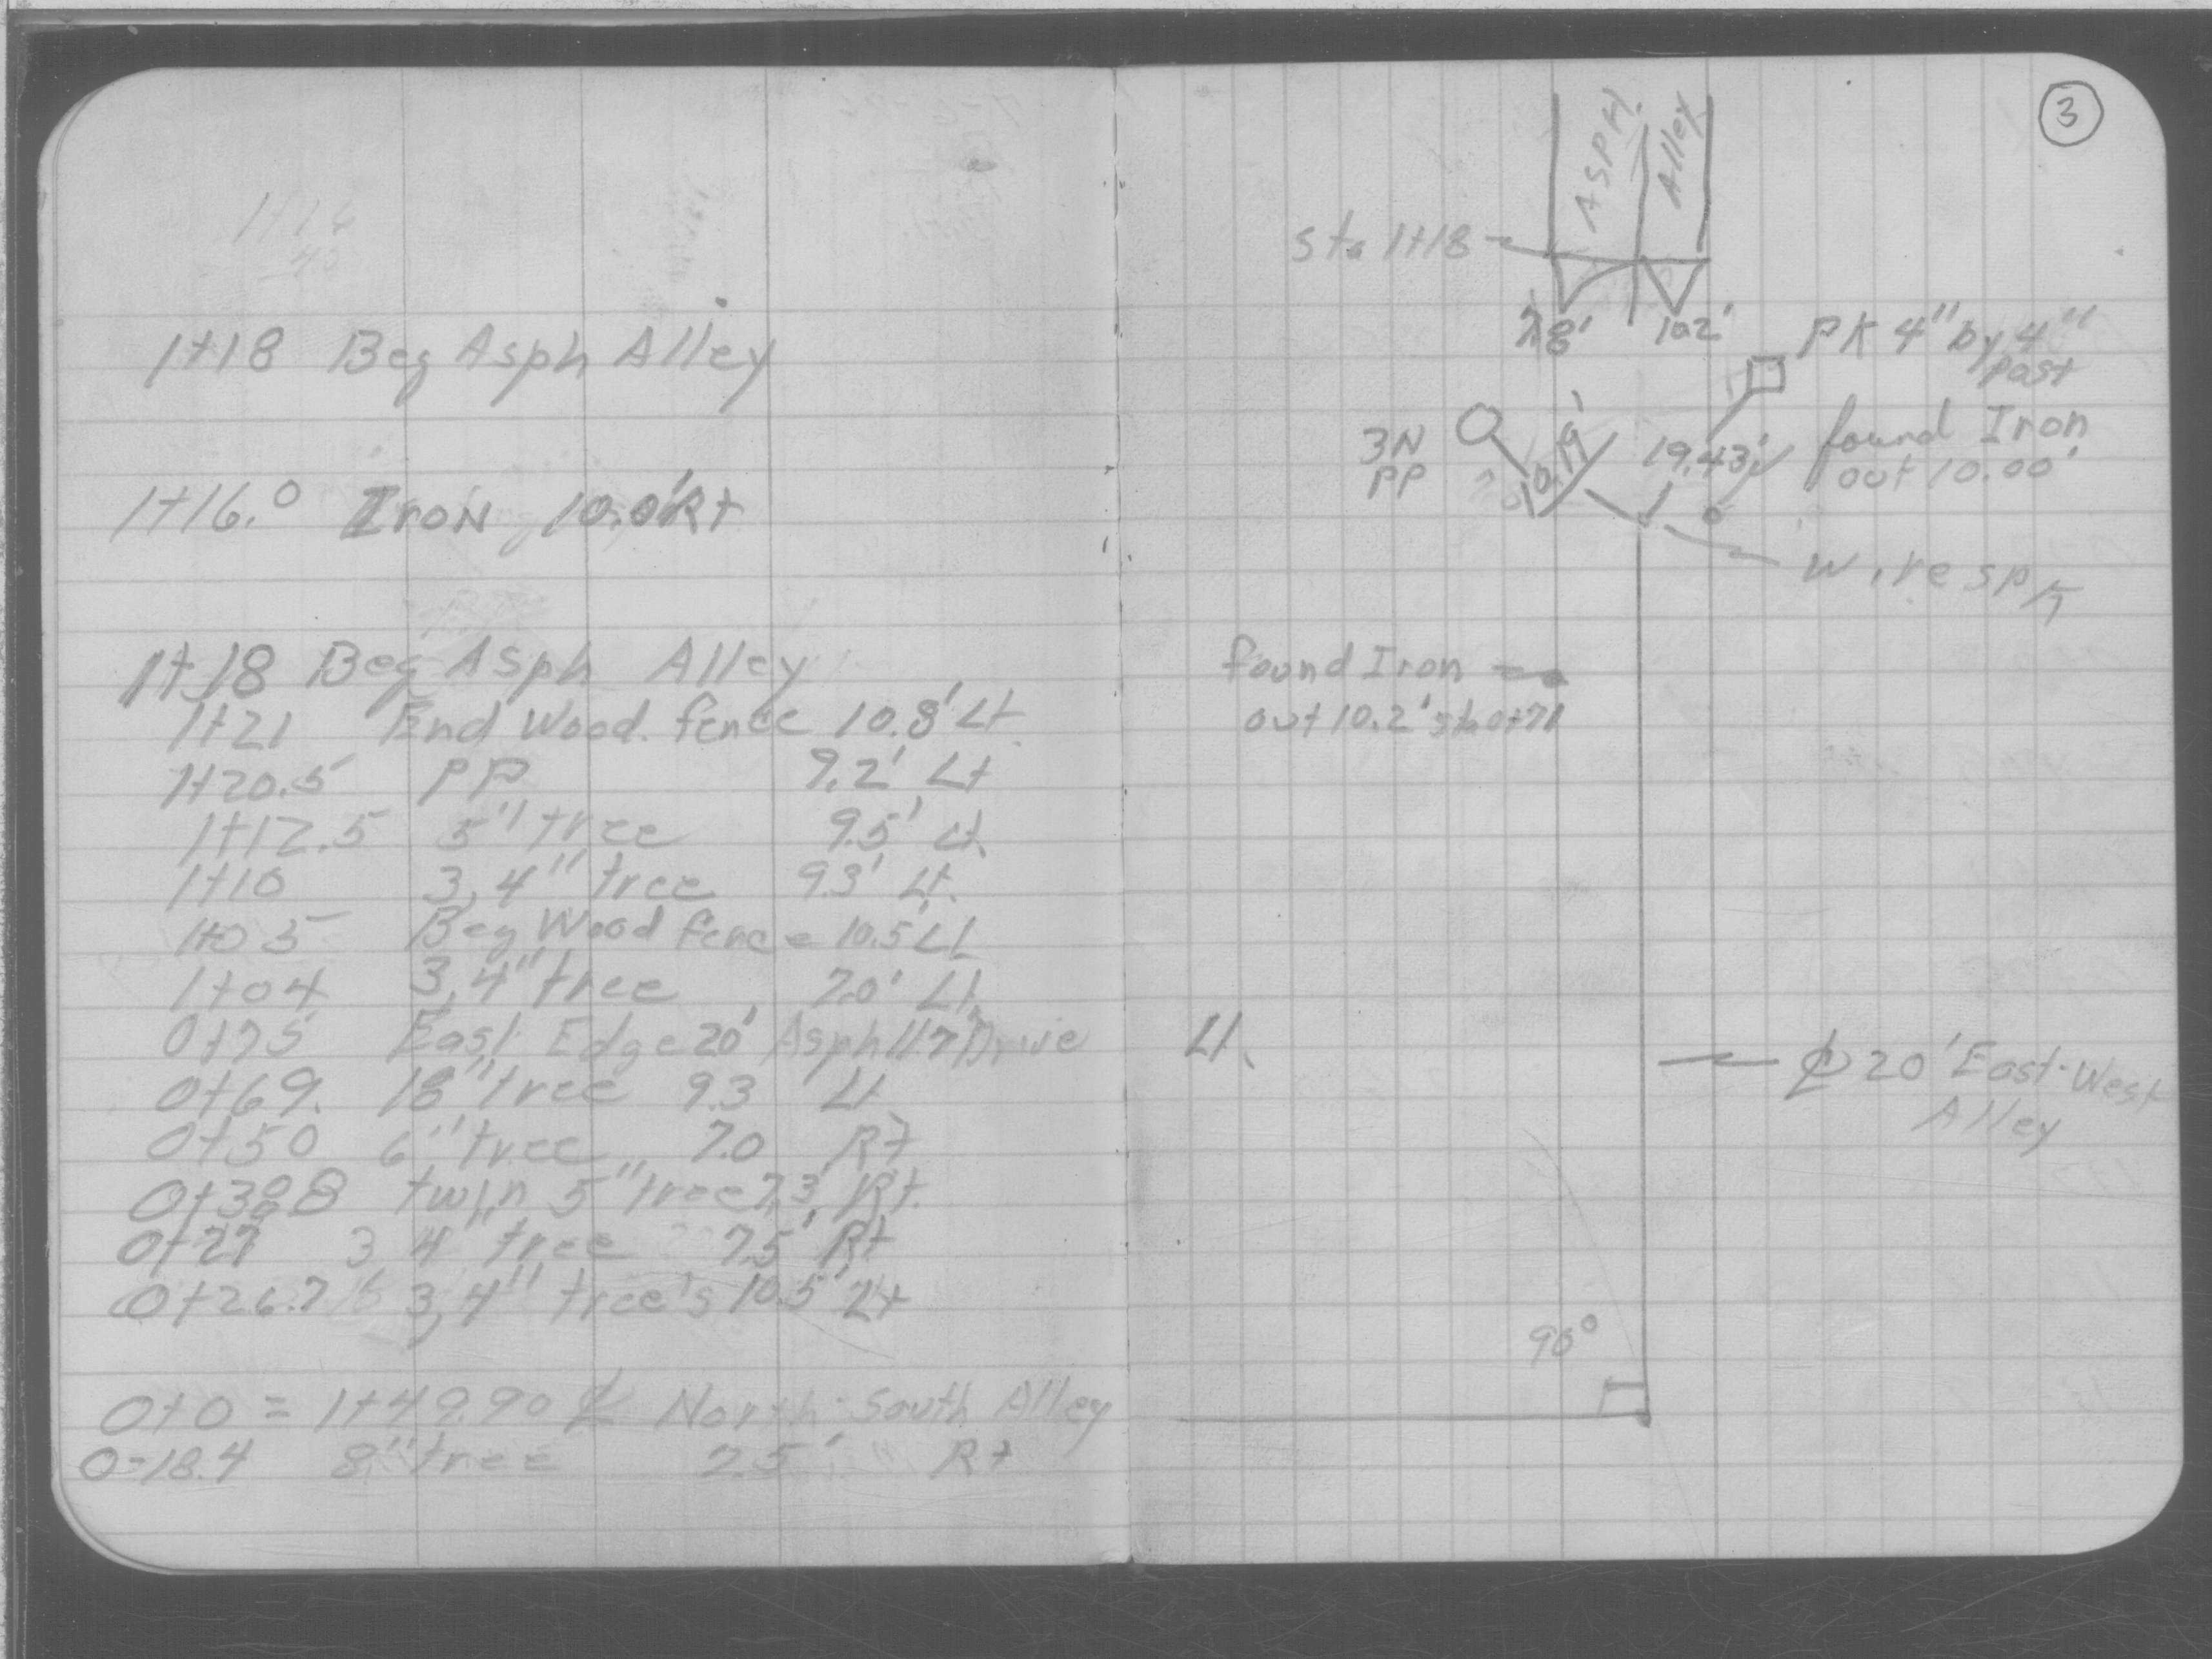 1+18 Beg Asph Alley
1+16.0 Iron 10.0' Rt
1+18 Beg Asph Alley
1+21 End Wood fence 10.8' Lt
1+20.5 PP 9.2' Lt
1+12.5 5" tree 9.5' Lt.
1+10 3,4" tree 9.3' Lt.
1+05 Beg Wood fence 10.5' Lt
1+04 3,4" tree 7.0' Lt.
0+75 East Edge 20' Asph Drive Lt.
0+69. 18" tree 9.3 Lt
0+50 6" tree 7.0 Rt
twin 5" tree 7.3' Rt.
0+27 3,4" tree 7.5' Rt
0+26.7 3,4" tree's 10.5' Lt
0+0 = 1+49.90 ℄ North-South Alley
0-18.4 8" tree 7.5' Rt
3
ASPH. Alley
Sta 1+18
7.8' 10.2'
PK 4" by 4" Post
3N PP
10.19'
19.43'
found Iron out 10.00'
Wire spk
found Iron
out 10.2' sta 0+71
℄ 20' East-West
Alley
90°